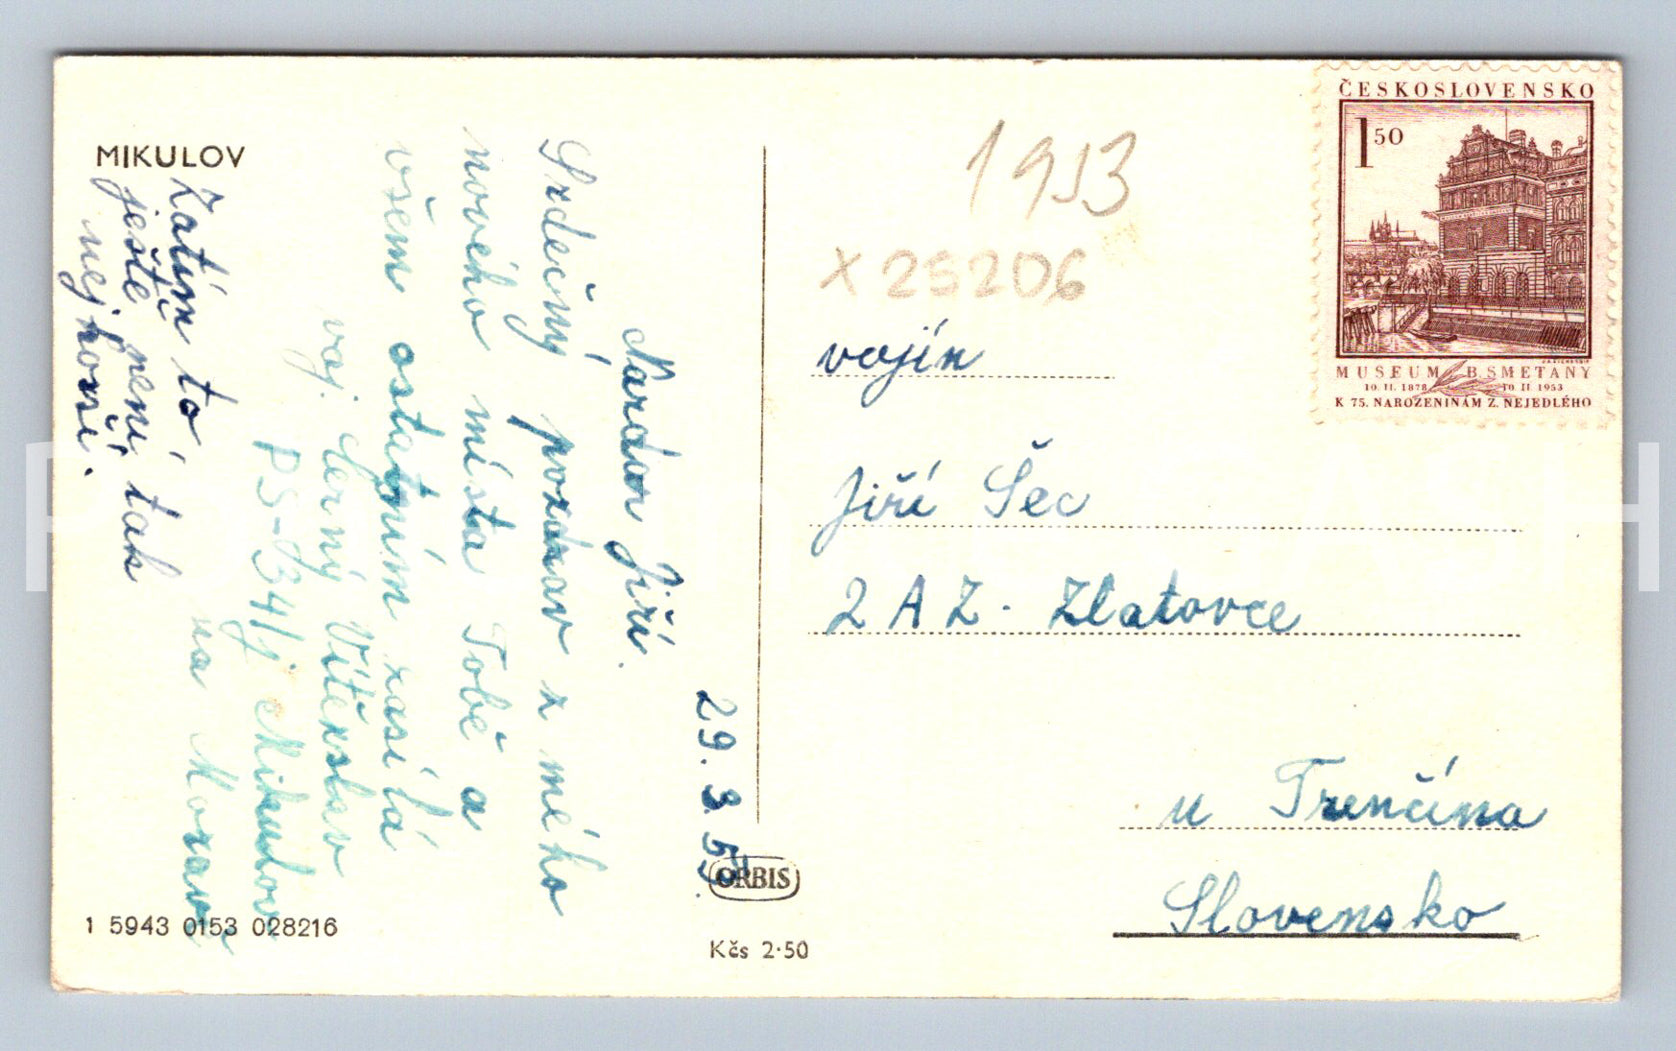 MIKULOV
29. 3. 53.
Nazdar Jiří.
Srdečný pozdrav z mého
nového místa Tobě a
všem ostatním zasílá
voj. Černý Vítězslav
PS-34/j Mikulov
na Moravě
Zatím to
ještě není tak
nejhorší.
1 5943 0153 028216
ORBIS
Kčs 2·50
1953
X 25206
vojín
Jiří Šec
2 A Z. Zlatovce
u Trenčína
Slovensko
ČESKOSLOVENSKO
1 50
MUSEUM B. SMETANY
10. II. 1878 10. II 1953
K 75. NAROZENINÁM Z. NEJEDLÉHO